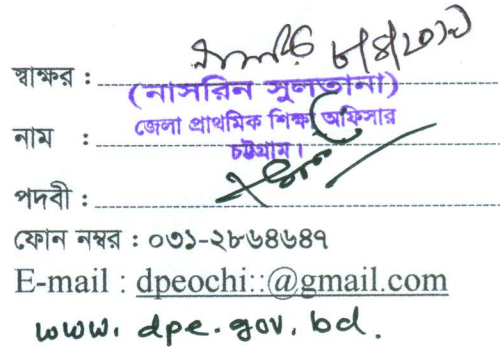 স্বাক্ষর :
(নাসরিন সুলতানা)
জেলা প্রাথমিক শিক্ষা অফিসার
নাম :
চট্টগ্রাম।
পদবী :
ফোন নম্বর : ০৩১-২৮৬৪৬৪৭
E-mail : dpeochi::@gmail.com
www. dpe. gov. bd.